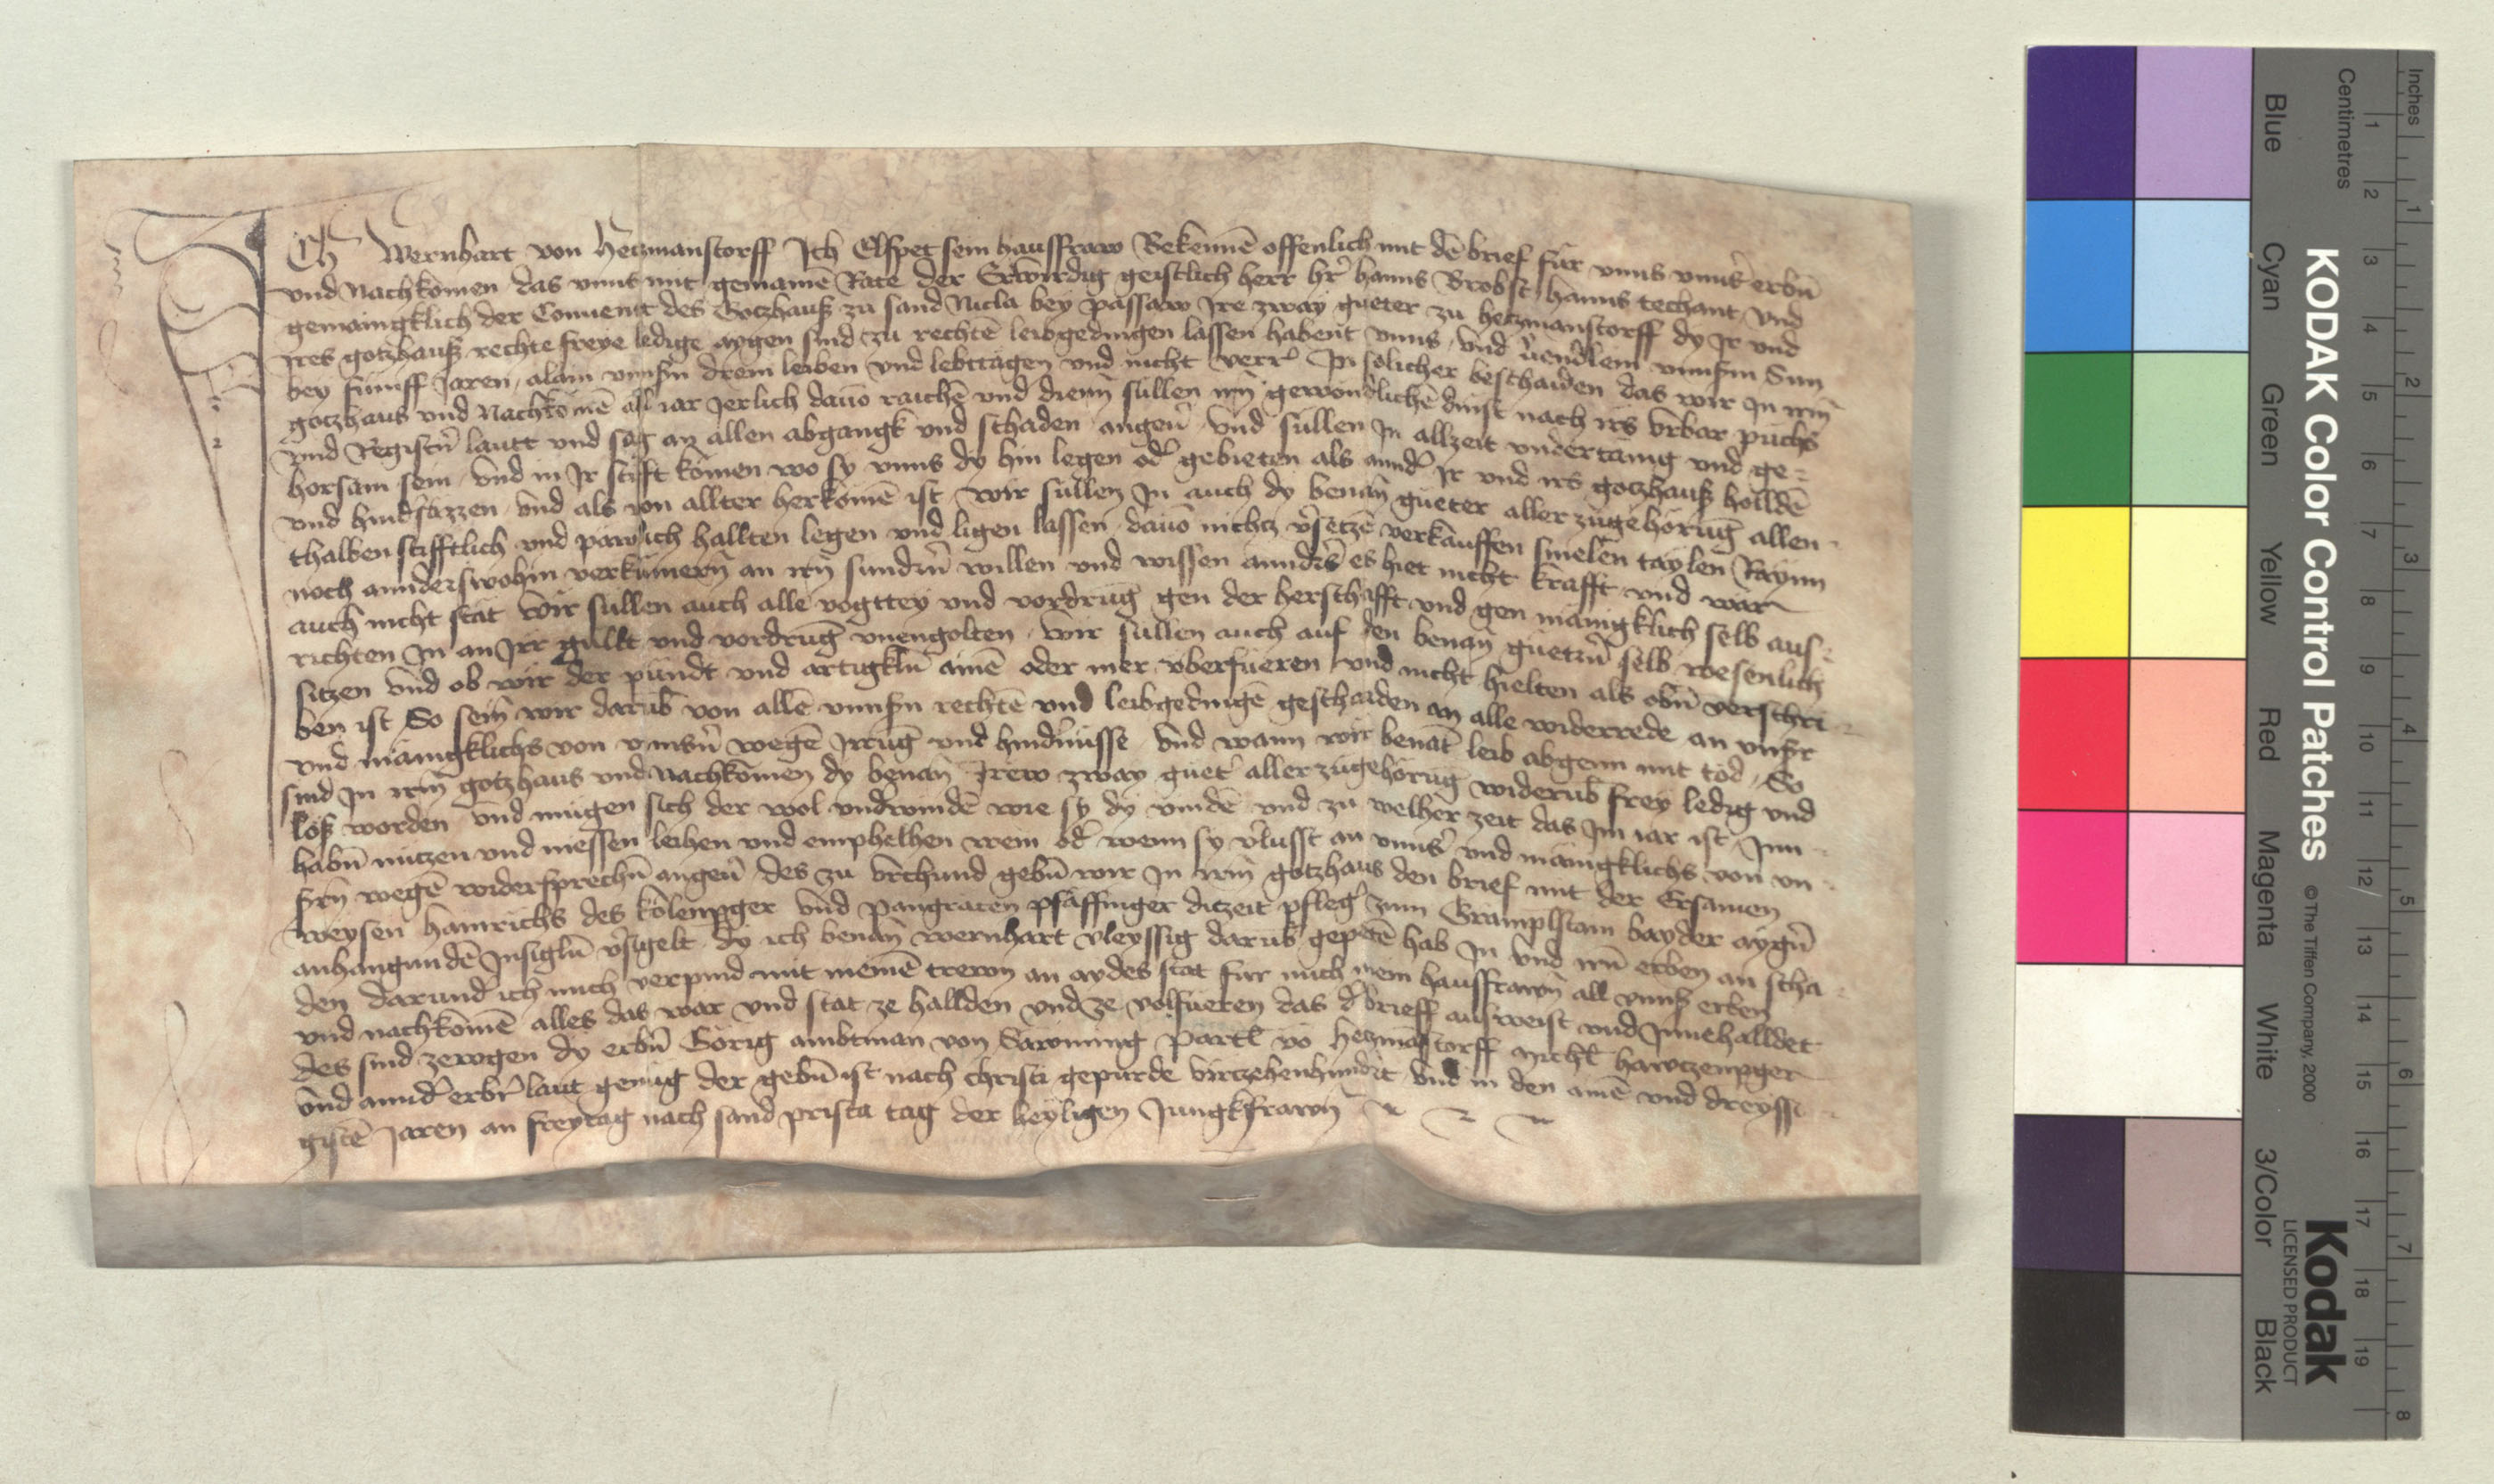 Ich Wernhart von Hetzmanstorff Ich Elspet sein hausfraw Bekennē offenlich mit dē brief für vnns vnns̉ erbn̄
vnd Nachkomen das vnns mit gemainē Rate der Erwirdig geistlich herr hr̉ hanns Brobst hanns techant vnd
gemaingklich der Conuent des Gotzhauß zu sand Nicla bey passaw Ire zway gueter zu hetzmanstorff dy Ir vnd
Ires gotzhauß rechte freye ledige aygen sind zu rechtē leibgedingen lassen habent vnns vnd vnnsm̄ Sun
bey fünff Jaren alain vnnsn̄ drein leiben vnd lebttagen vnd nicht verr̉ In solicher beschaiden das wir In irm̄
gotzhaus vnd Nachkomē all iar Jerlich dauō raichē vnd dienn̄ sullen irn̄ gewondlichē dinst nach irs vrbar puchs
vnd Registn̄ lautt vnd sag an allen abgangk vnd schaden angeu̓ vnd sullen In allzeit vndertänig vnd ge=
horsam sein vnd in Ir stift komen wo sy vnns dy hin legen od̉ gebieten als annd̉ Ir vnd irs gotzhauß holldē
vnd hindsäzzen vnd als von allter herkomē ist wir sullen In auch dy benan̄ gueter aller zugehöruḡ allen
thalben stifftlich vnd pawlich hallten legen vnd ligen lassen dauō nichtz v̉setzē verkauffen smelen taylen Raynn
noch annderswohin verkümern̄ an irn̄ sundrn̄ willen vnd wissen anndr̉s es hiet nicht krafft vnd wär
auch nicht stät wir sullen auch alle vogttey vnd vordruḡ gen der herschafft vnd gen mänigklich selb aus
richten In an Irr güllt vnd vordruḡ vnengolten wir sullen auch auf den benan̄ guetrn̄ selb wesenlich
sitzen vnd ob wir der pündt vnd artigkln̄ ainē oder mer vberfueren vnd nicht hielten als obn̄ verschri
ben ist So sein wir darub̄ von allē vnnsn̄ rechtē vnd leibgedingē geschaiden an alle widerrede an vnsr
vnd mänigklichs von vnnsn̄ wegē Irruḡ vnd hindnüsse vnd wann wir benāt leib abgenn mit tod So
sind In irm̄ gotzhaus vnd Nachkomen dy benan̄ Irew zway guet̉ aller zugehöruḡ widerub̄ frey ledig vnd
loß worden vnd mügen sich der wol vnderwindē wie sy dy vindē vnd zu welher zeit das Im iar ist Inn
habn̄ nützen vnd niessen leihen vnd emphelhen wem od̉ wenn sy v̉lusst an vnns̉ vnd mänigklichs von vn
srn̄ wegē widersprechn̄ angeu̓ des zu vrchund gebn̄ wir In irm̄ gotzhaus den brief mit der Ersamen
weysen hainrichs des kölenpger vnd Pangrätzen pfäffinger ditzeit pfleg̉ zum Grämplstain bayder aygn̄
anhangundē Insigln̄ v̉sigelt dy ich benan̄ wernhart vleyssig darub̄ gepetē hab In vnd irn̄ erben an scha
den darund̉ ich mich verpind mit meinē trewn an aydes stat für mich mein hausfrawn̄ all vnnsr erben
vnd nachkomē alles das war vnd stät ze hallden vnd ze volfueren das d̉ brieff ausweist vnd Innehalldet
des sind zewgen dy erbn̄ Görig ambtman von Sawming Partl vō Hetzmāstorff michl hawtzenpger
vnd annd̉ erbr̉ laut genüg der gebn̄ ist nach christi gepürde Virczehenhundrt vnd in den ainē vnd dreyssi
gistē Jaren an freytag nach sand prisca tag der heyligen Jungkfrawn̄
KODAK Color Control Patches ©The Tiffen Company, 2000
Kodak
LICENSED PRODUCT
Blue Cyan Green Yellow Red Magenta White 3/Color Black
Centimetres 1 2 3 4 5 6 7 8 9 10 11 12 13 14 15 16 17 18 19
Inches 1 2 3 4 5 6 7 8